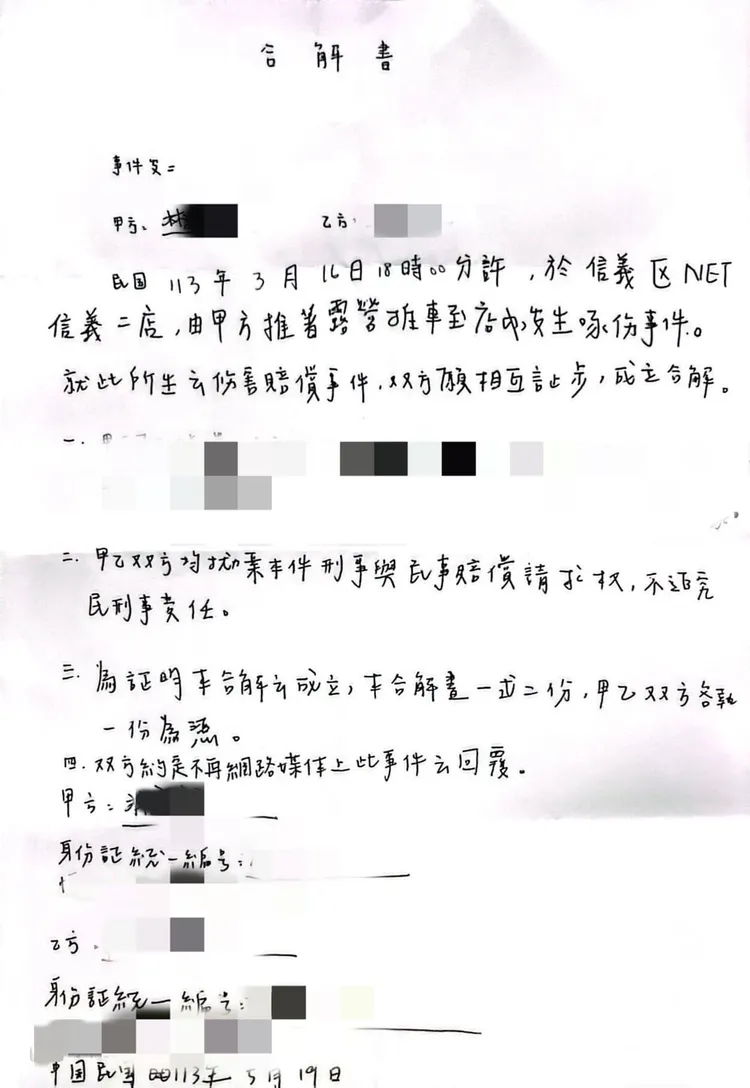 合解書
事件
甲方: 林 乙方:
民国 113年 3月 16日18時00分許,於信義区NET
信義二店,由甲方推著露營推車至店内发生啄伤事件。
就此所生之伤害賠償事件,双方願相互让步,成立合解。
一.
二. 甲乙双方均抛棄本件刑事與民事賠償請求权,不追究
民刑事責任。
三. 為証明本合解之成立,本合解書一式二份,甲乙双方各執
一份為憑。
四. 双方約定不再網路媒体上此事件之回覆。
甲方:
身份証統一編号:
乙方.
身份証統一編号:
中国民国 113年 5月 19日